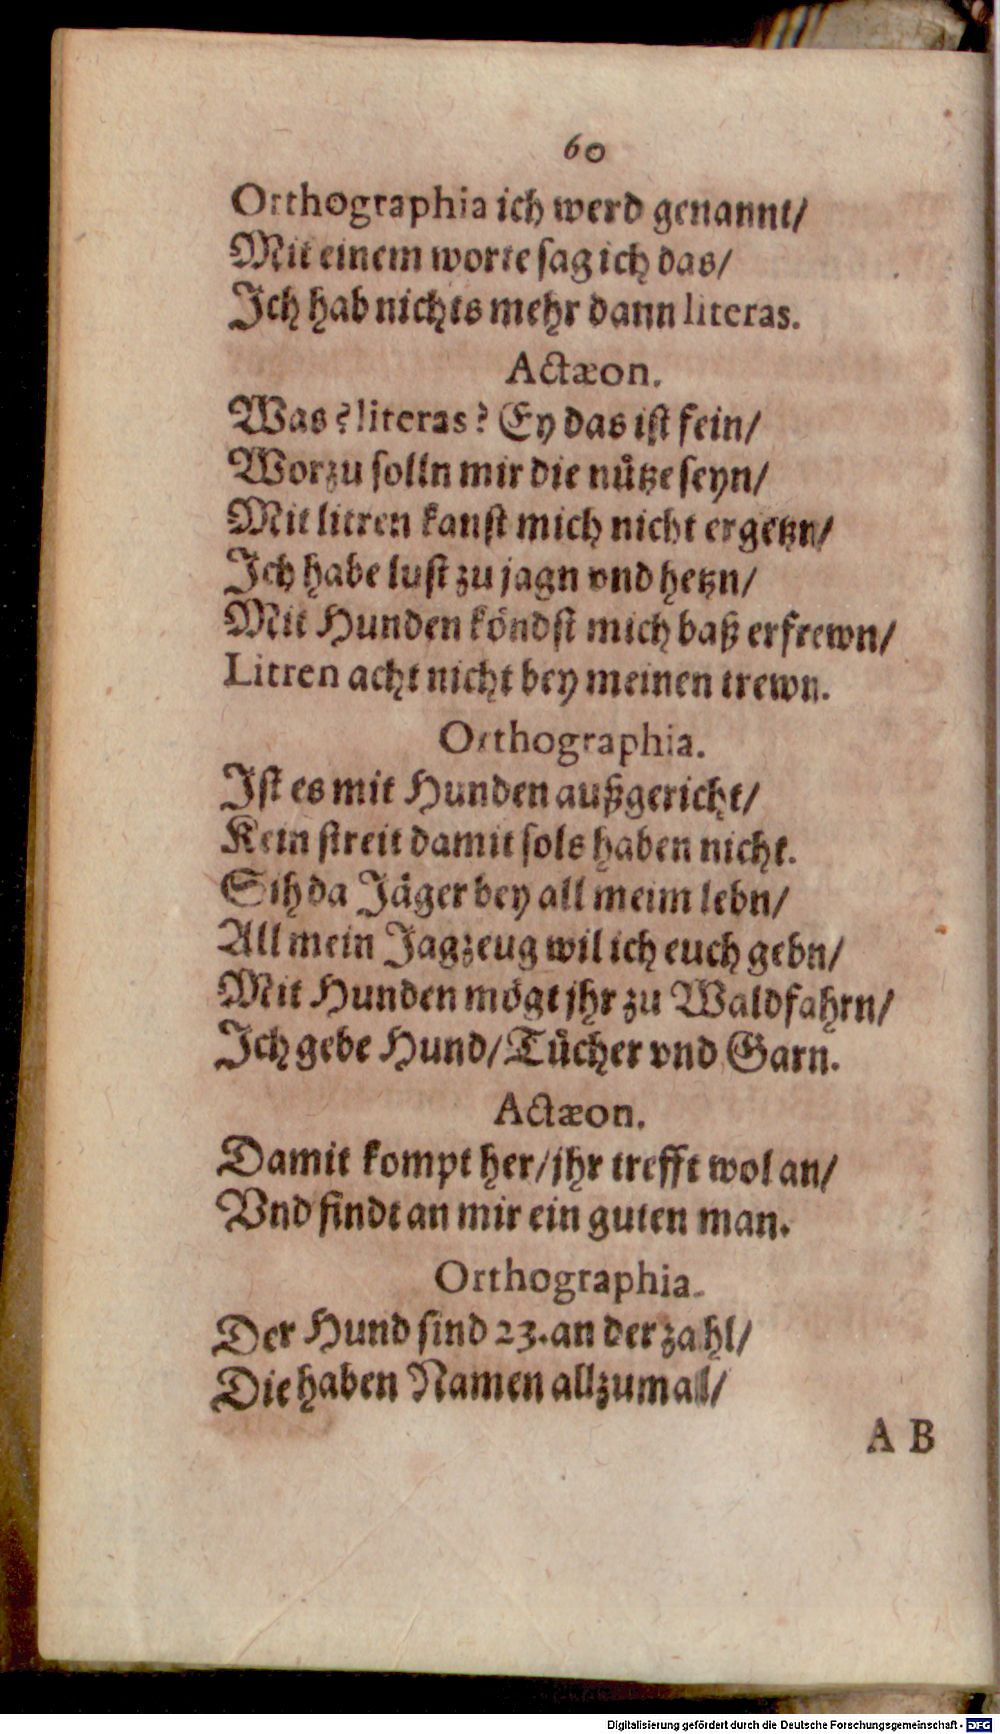 60
Orthographia ich werd genannt/
Mit einem worte sag ich das/
Ich hab nichts mehr dann literas.
Actæon.
Was? literas? Ey das ist fein/
Worzu solln mir die nuͤtze seyn/
Mit litren kanst mich nicht ergetzn/
Ich habe lust zu jagn vnd hetzn/
Mit Hunden koͤndst mich baß erfrewn/
Litren acht nicht bey meinen trewn.
Orthographia.
Ist es mit Hunden außgericht/
Kein streit damit sols haben nicht.
Sih da Jaͤger bey all meim lebn/
All mein Jagzeug wil ich euch gebn/
Mit Hunden moͤgt jhr zu Waldfahrn/
Ich gebe Hund/ Tuͤcher vnd Garn.
Actæon.
Damit kompt her/ jhr trefft wol an/
Vnd findt an mir ein guten man.
Orthographia.
Der Hund sind 23. an der zahl/
Die haben Namen allzumal/
A B
Digitalisierung gefördert durch die Deutsche Forschungsgemeinschaft - DFG